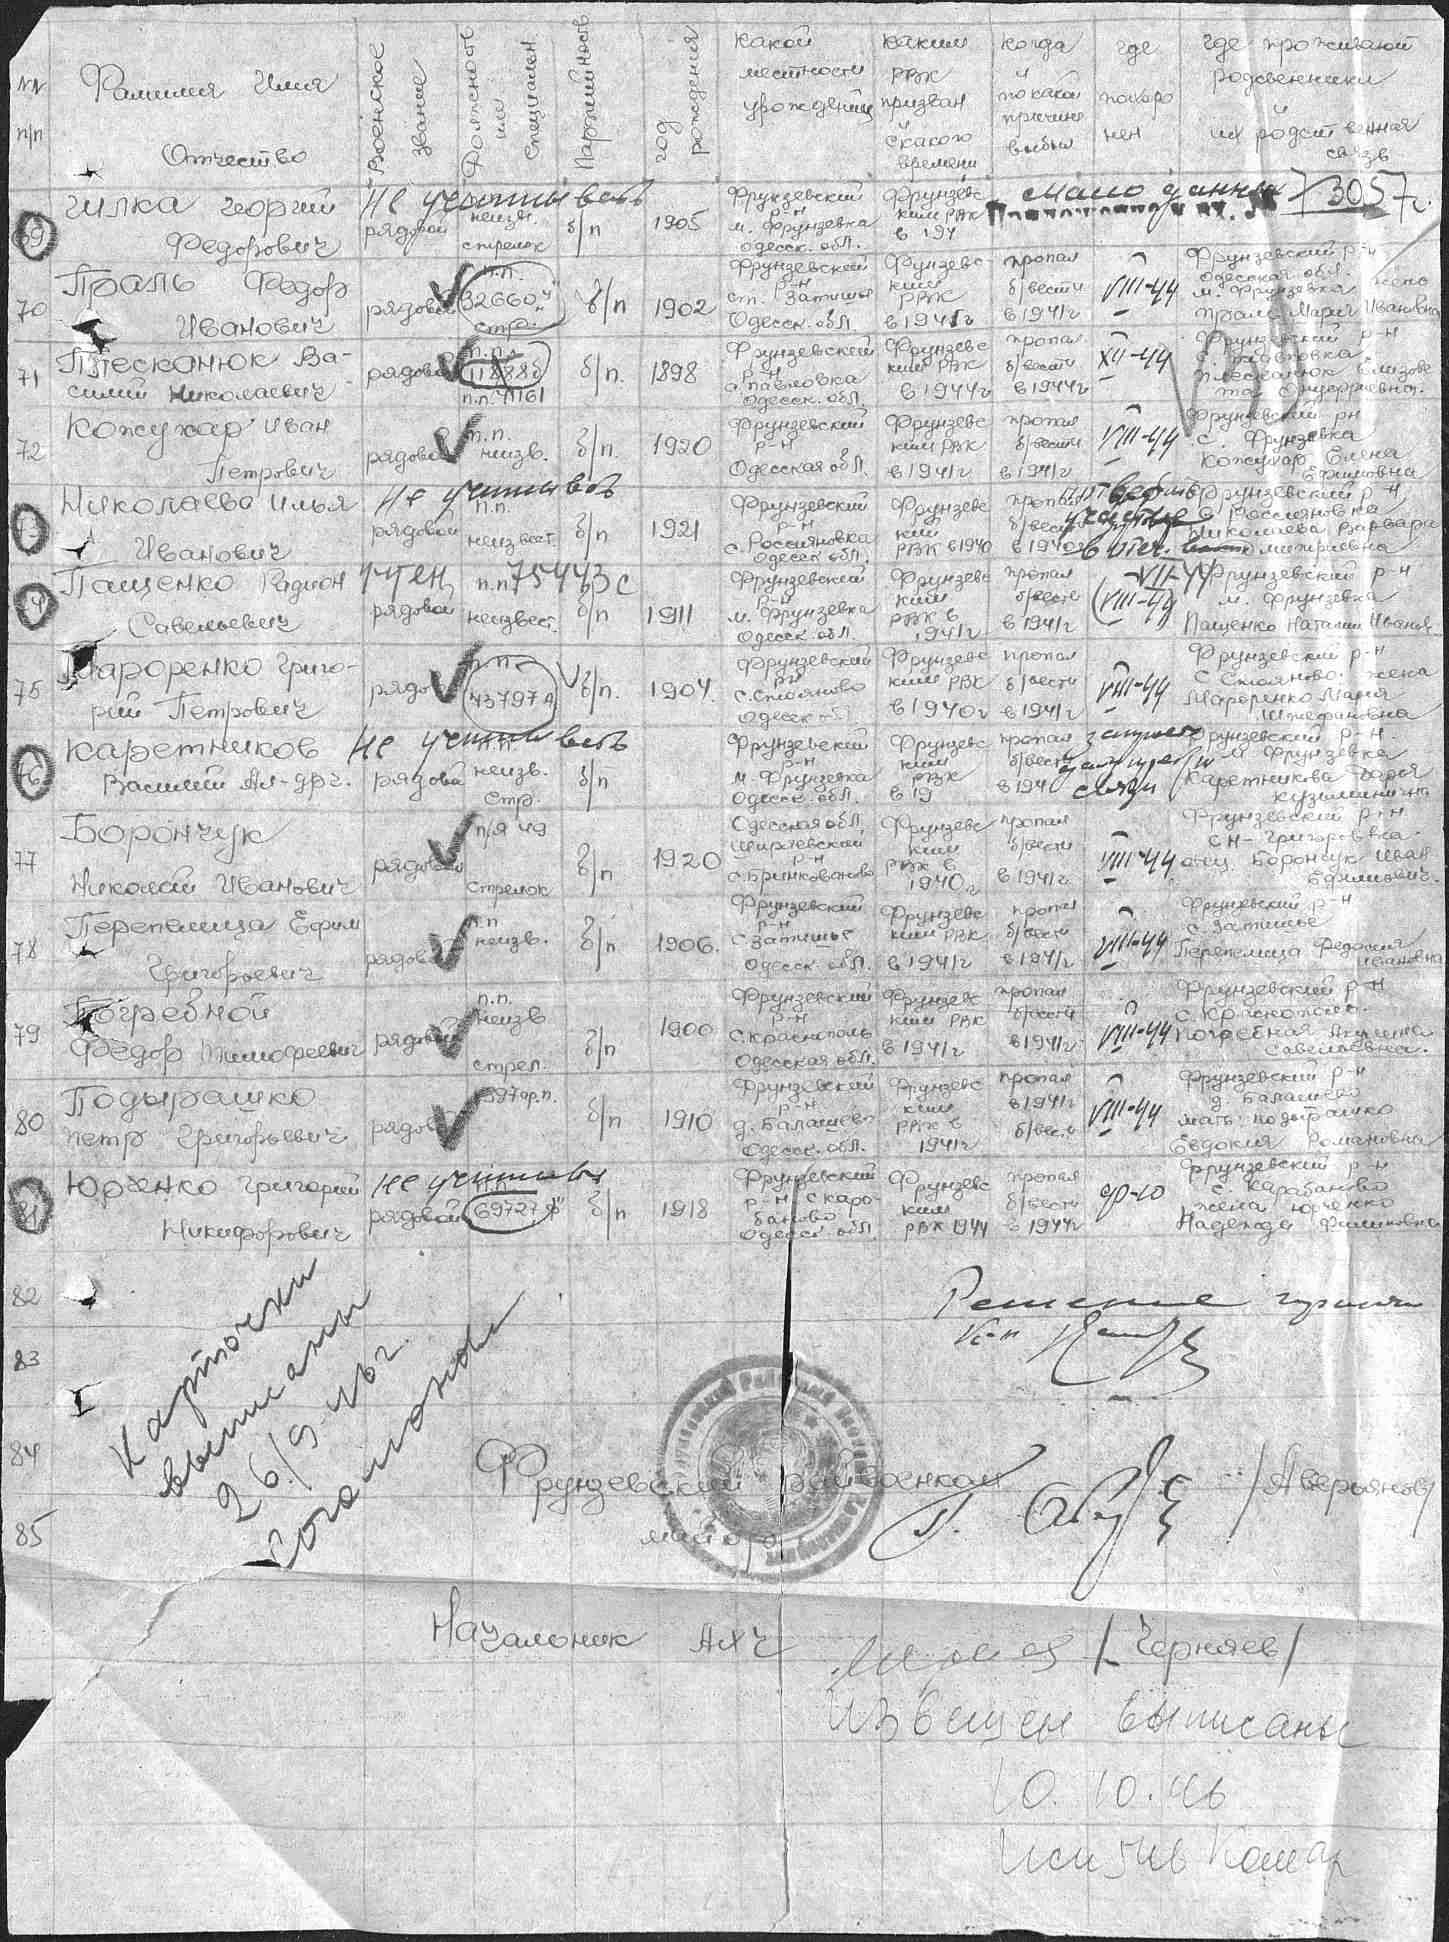 NN п/п
Фамилия Имя Отчество
Военское звание
Должность или специальн.
Партийность
год рождения
какой местности урожденец
каким РВК призван и с какого времени
когда и по какой причине выбыл
где похоронен
где проживают родственники и их родственная связь
69 Гилка Георгий Федорович
Не учитывать
рядовой неизв. стрелок б/п 1905
Фрунзевский р-н м. Фрунзевка Одесск. обл.
Фрунзевский РВК в 194
мало данных 73057г.
70 Праль Федор Иванович
рядовой п.п. 32660 "ч" стр. б/п 1902
Фрунзевский р-н ст. Затишье Одесск. обл.
Фрунзевский РВК в 1941г
пропал б/вести в 1941г
VIII-44
Фрунзевский р-н Одесская обл. м. Фрунзевка жена Праль Мария Ивановна
71 Плесканюк Василий Николаевич
рядовой п.п. п.п. 71161 б/п. 1898
Фрунзевский р-н с. Павловка Одесск. обл.
Фрунзевский РВК в 1944г
пропал б/вести в 1944г
XII-44
Фрунзевский р-н с. Павловка Плесканюк Елизавета Андреевна.
72 Кожухар Иван Петрович
рядовой п.п. неизв. б/п. 1920
Фрунзевский р-н Одесская обл.
Фрунзевский РВК в 1941г
пропал б/вести в 1941г
VIII-44
Фрунзевский рн с. Фрунзевка Кожухар Елена Ефимовна
73 Николаева Илья Иванович
Не учитывать
рядовой п.п. неизвест. б/п 1921
Фрунзевский р-н с. Россияновка Одесск. обл.
Фрунзевский РВК в 1940
пропал б/вести в 1940г
участие в отеч.
Фрунзевский р-н, с Россияновка Николаева Варвара
74 Пащенко Радион Савельевич
учтен, п.п. 75443 с
рядовой неизвест. б/п 1911
Фрунзевский р-н м. Фрунзевка Одесск. обл.
Фрунзевский РВК в 1941г
пропал б/вести в 1941г
VII-44
(VIII-44)
Фрунзевский р-н м. Фрунзевка Пащенко Наталия Иванов.
75 Мароренко Григорий Петрович
рядо п.п. 43797 А б/п. 1904.
Фрунзевский рн с. Стояново Одесск обл
Фрунзевский РВК в 1940г
пропал б/вести в 1941г
VIII-44
Фрунзевский р-н с Стояново. жена Мароренко Мария Штефановна
76 Каретников Василий Ал-дрч.
Не учитывать
рядовой п.п. неизв. стр. б/п
Фрунзевский р-н м. Фрунзевка Одесск. обл.
Фрунзевский РВК в 19
пропал б/вести в 194
связи
Фрунзевский р-н. м Фрунзевка Каретникова Дарья Кузьминична
77 Борончук Николай Иванович
рядовой п/я 49 стрелок б/п 1920
Одесская обл. Ширяевский р-н с. Бринкованово
Фрунзевский РВК в 1940г
пропал б/вести в 1941г
VIII-44
Фрунзевский р-н с Н-Григоровка. отец. Борончук Иван Ефимович.
78 Перепелица Ефим Григорьевич
рядов п.п неизв. б/п 1906.
Фрунзевский р-н с. Затишье Одесск. обл.
Фрунзевский РВК в 1941г
пропал б/вести в 1941г
VIII-44
Фрунзевский р-н с. Затишье Перепелица Федосия Ивановна
79 Погребной Федор Тимофеевич
рядовой п.п. неизв. стрел. б/п 1900
Фрунзевский р-н с. Краснополь Одесская обл.
Фрунзевский РВК в 1941г
пропал б/вести в 1941г
VIII-44
Фрунзевский р-н с. Краснополь. Погребная Акулина Савельевна.
80 Подырашко Петр Григорьевич
рядов 397ар.п. б/п 1910
Фрунзевский р-н д. Балашево Одесск. обл.
Фрунзевский РВК в 1941г
пропал в 1941г б/вест
VIII-44
Фрунзевский р-н д. Балашево мать Подырашко Евдокия Романовна
81 Юрченко Григорий Никифорович
не учитывать
рядовой п.п. 69727 б/п 1918
Фрунзевский р-н с Карабаново Одесск. обл.
Фрунзевский РВК 1944
пропал б/вести в 1944г
ф-10
Фрунзевский р-н с. Карабаново жена Юрченко Надежда Филиповна
82
83
84
85
Карточки выписаны 26/9-46г.
Решение
Фрунзевский райвоенком
майор /Аверьянов/
Начальник АХЧ /Черняев/
Извещен выписаны
10.10.46